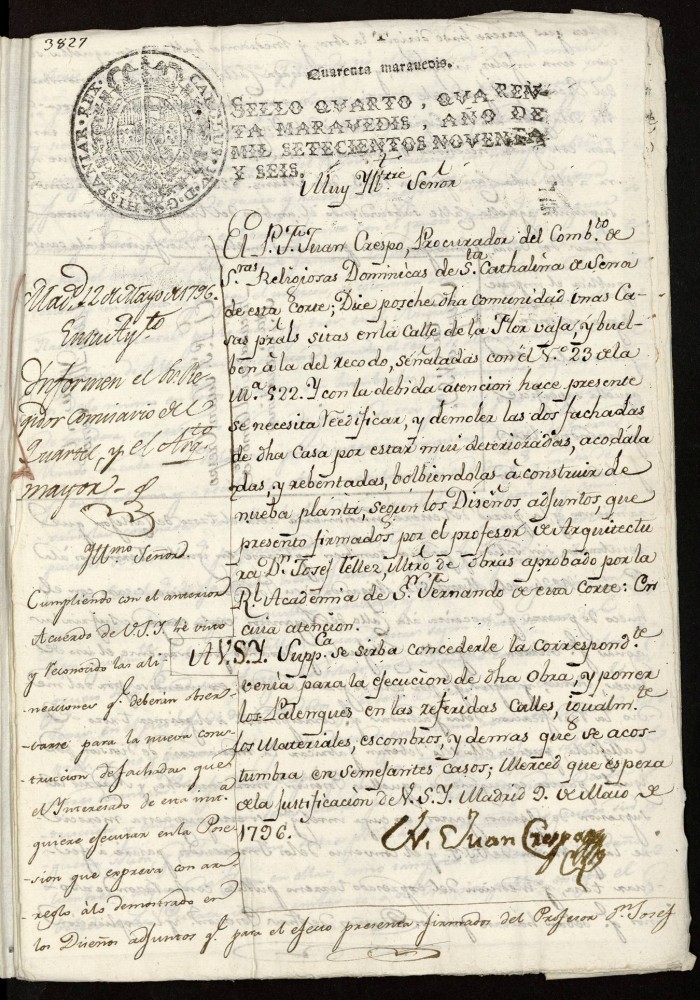 3827
HISPANIAR. REX. CAROLUS IV D. G.
Quarenta maravedis.
SELLO QVARTO, QVAREN-
TA MARAVEDIS, AÑO DE
MIL SETECIENTOS NOVENTA
Y SEIS.
Muy Yttre. Señor
El P. Fr. Juan Crespo, Procurador del Combto. de
Sras. Religiosas Dominicas de Sta. Cathalina de Sena
de esta Corte; Dice posehe dha Comunidad unas Ca-
sas prals sitas en la Calle de la Flor vaja, y buel-
ben à la del recodo, señaladas con el N.º 23 de la
Mª 522. Y con la debida atencion hace presente
se necesita reedificar, y demoler las dos fachadas
de dha Casa por estar mui deterioradas, acodala
das, y rebentadas, bolbiendolas à construir de
nueba planta, segun los Diseños adjuntos, que
presento firmados por el profesor de Arquitectu
ra Dn. Josef Tellez, Mtro. de obras aprobado por la
Rl. Academia de Sn. Fernando de esta Corte: En
cuia atencion.
A V.S.I. Suppca. se sirba concederle la correspondte.
venia para la execucion de dha Obra, y poner
los Palenques en las referidas Calles, igualmte.
los Materiales, escombros, y demas que se acos-
tumbra en semejantes casos; Merced que espera
de la Justificacion de V.S.I. Madrid 9. de Maio de
1796.
Fr. Juan Crespo
Madd. 12 de Mayo de 1796.
En su Aytto.
Informen el Sr. Re-
gidor Comisario del
Quartel, y el Arqto.
mayor
Yllmo Señor
Cumpliendo con el anterior
Acuerdo de V.S.I. he visto
y reconocido las ali-
neaciones q. deberán obser-
-barse para la nueva cons-
-truccion de fachadas que
el Interesado de esta instª
quiere executar en la Pose-
-sion que expresa con ar-
reglo à lo demostrado en
los Diseños adjuntos q. para el efecto presenta firmados del Profesor Dn. Josef